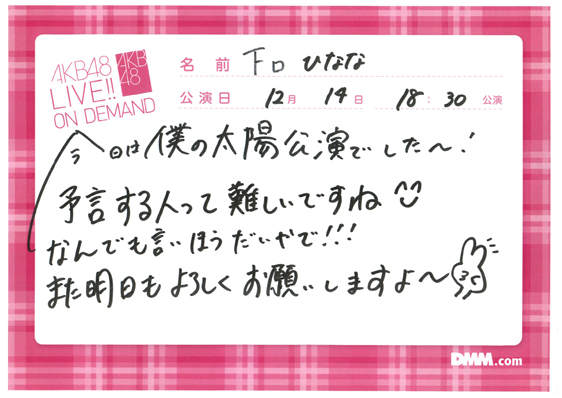 AKB48
LIVE!!
ON DEMAND
AKB
48
名前 下口ひなな
公演日 12月 14日 18:30 公演
今日は僕の太陽公演でした〜!
予言する人って難しいですね
なんでも言いほうだいやで!!!
また明日もよろしくお願いしますよ〜
DMM.com